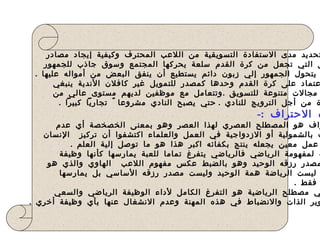 تحديد مدى الاستفادة التسويقية من اللاعب المحترف وكيفية إيجاد مصادر
التي تجعل من كرة القدم سلعة يحركها المجتمع وسوق جاذب للجمهور
يتحول الجمهور إلي زبون دائم يستطيع أن ينفق البعض من أمواله عليها .
عتماد على كرة القدم وحدها كمصدر للتمويل غير كافلان الأندية ينبغي
مجالات متنوعة للتسويق .وتتعامل مع موظفين لديهم مستوى عالي من
ة من أجل الترويج للنادي . حتي يصبح النادي مشروعا ً تجاريا ً كبيرا ً .
الاحتراف :-
راف هو المصطلح العصري لهذا العصر وهو بمعنى الخصخصة أي عدم
بالشمولية أو الازدواجية في العمل والعلماء اكتشفوا أن تركيز الإنسان
عمل معين يجعله ينتج بكفائه اكبر هذا هو ما توصل إلية العلم .
لمفهومة الرياضي فالرياضي يتفرغ تماما للعبة يمارسها كأنها وظيفة
مصدر رزقه الوحيد وهو بالضبط عكس مفهوم اللاعب الهاوي والذي هو
ليست الرياضة همة الوحيد وليست مصدر رزقه الأساسي بل يمارسها
فقط .
ي مصطلح الرياضية هو التفرغ الكامل لأداء الوظيفة الرياضي والسعي
وير الذات والانضباط في هذه المهنة وعدم الانشغال عنها بأي وظيفة أخري .